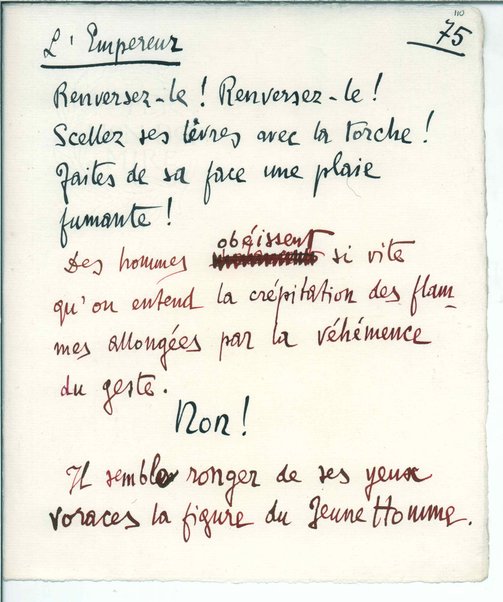 110
75
L'Empereur
Renversez-le ! Renversez-le !
Scellez ses lèvres avec la torche !
Faites de sa face une plaie
fumante !
obéissent
Des hommes si vite
qu'on entend la crépitation des flam-
mes allongées par la véhémence
du geste.
Non !
Il semble ronger de ses yeux
voraces la figure du Jeune Homme.